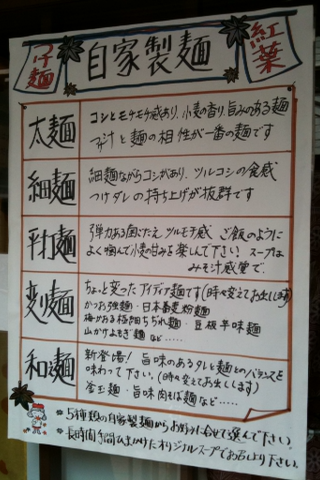 つけ麺
自家製麺
紅葉
太麺
コシとモチモチ感あり、小麦の香り、旨みのある麺
つけ汁と麺の相性が一番の麺です
細麺
細麺ながらコシがあり、ツルコシの食感
つけダレの持ち上げが抜群です
平打麺
弾力ある歯ごたえ、ツルモチ感 ご飯のように
よく噛んで小麦の甘みを楽しんで下さい スープは
みそ汁感覚で、
変り麺
ちょっと変ったアイディア麺です(時々変えてお出しします)
かつお強麺・日本蕎麦粉麺
梅かおる極細ちぢれ麺・豆板辛味麺
山かけよもぎ麺 など……
和麺
新登場! 旨味のあるタレと麺とのバランスを
味わって下さい。(時々変えてお出しします)
釜玉麺・旨味肉そば麺 など……
◎5種類の自家製麺からお好みに合せて選んで下さい。
◎長時間手間ひまかけたオリジナルスープでお召し上り下さい。